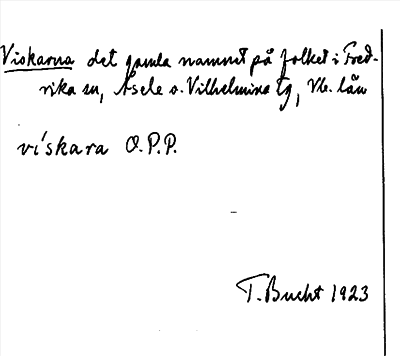 Viskarna det gamla namnet på folket i Fred-
rika sn, Åsele o. Vilhelmina tg, Vb. län
vískara O.P.P.
T. Bucht 1923